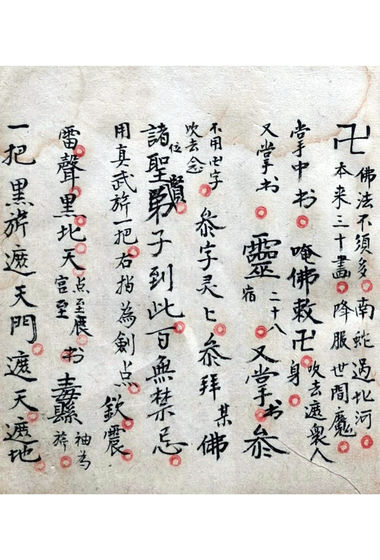 卍 佛法不須多 南蛇過北河
本来三十畫 降服世間魔
掌中书 唵佛敕卍身 吹去遮衆人
又掌书 靈 二十八宿 又掌书 叅
不用卍字 叅字灵上叅拜 某佛
吹去念
諸聖位 弟子到此百無禁忌
用真武旂一把右指為劍点
雷聲黑北天 点至展 书 袖為
宫至 旂
一把 黑旂遮天門遮天遮地